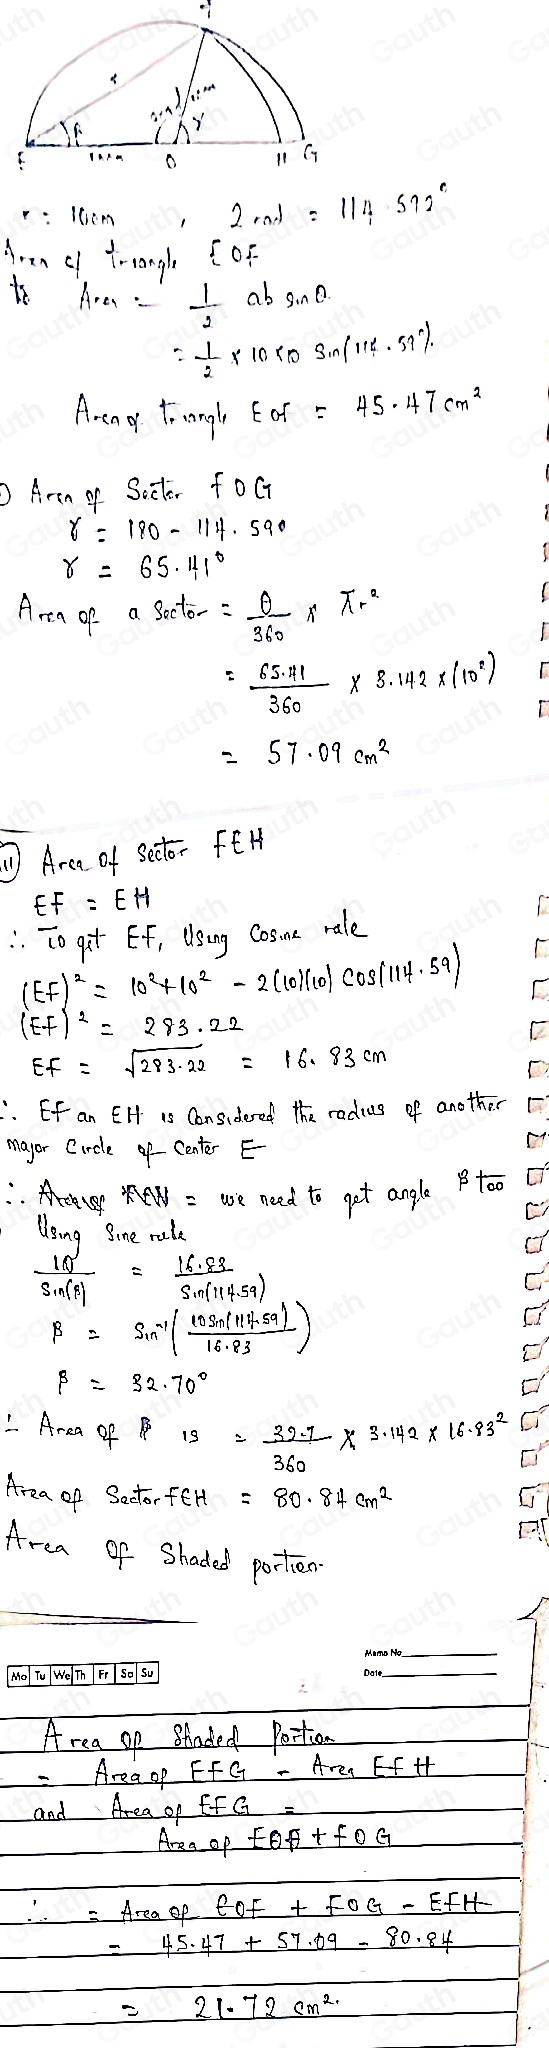 F
r
2 rad
10cm
β
γ
E
10cm
O
H G
r = 10cm , 2 rad = 114.592°
Area of triangle EOF
Area = 1/2 ab sin θ
= 1/2 × 10 × 10 sin(114.59°).
Area of triangle EOF = 45.47 cm²
) Area of Sector FOG
γ = 180 - 114.59°
γ = 65.41°
Area of a sector = θ/360 × πr²
= 65.41/360 × 3.142 × (10²)
= 57.09 cm²
(ii) Area of sector FEH
EF = EH
∴ To get EF, Using Cosine rule
(EF)² = 10² + 10² - 2(10)(10) Cos(114.59)
(EF)² = 283.22
EF = √283.22 = 16.83 cm
∴ EF an EH is Considered the radius of another
major Circle of Center E
∴ = we need to get angle β too
Using Sine rule
10/Sin(β) = 16.83/Sin(114.59)
β = Sin⁻¹(10Sin(114.59)/16.83)
β = 32.70°
∴ Area of β is = 32.7/360 × 3.142 × 16.83²
Area of Sector FEH = 80.84 cm²
Area of Shaded portion.
Memo No
Mo Tu We Th Fr Sa Su
Date
Area of Shaded Portion
= Area of EFG - Area EFH
and Area of EFG =
Area of EOF + FOG
∴ = Area of EOF + FOG - EFH
= 45.47 + 57.09 - 80.84
= 21.72 cm².